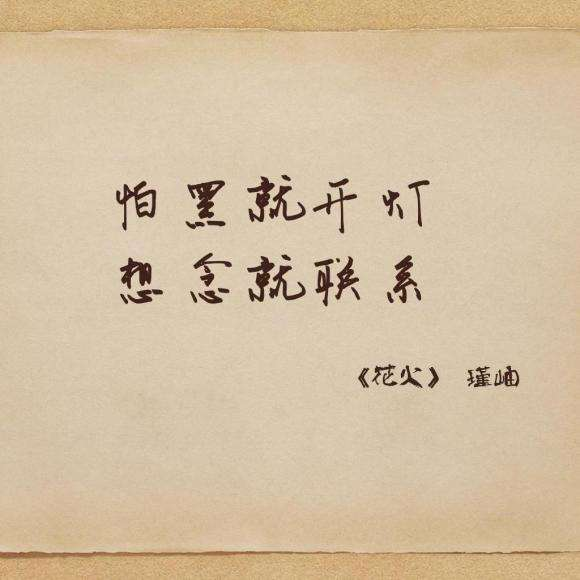 怕黑就开灯
想念就联系
《花火》 瑾岫